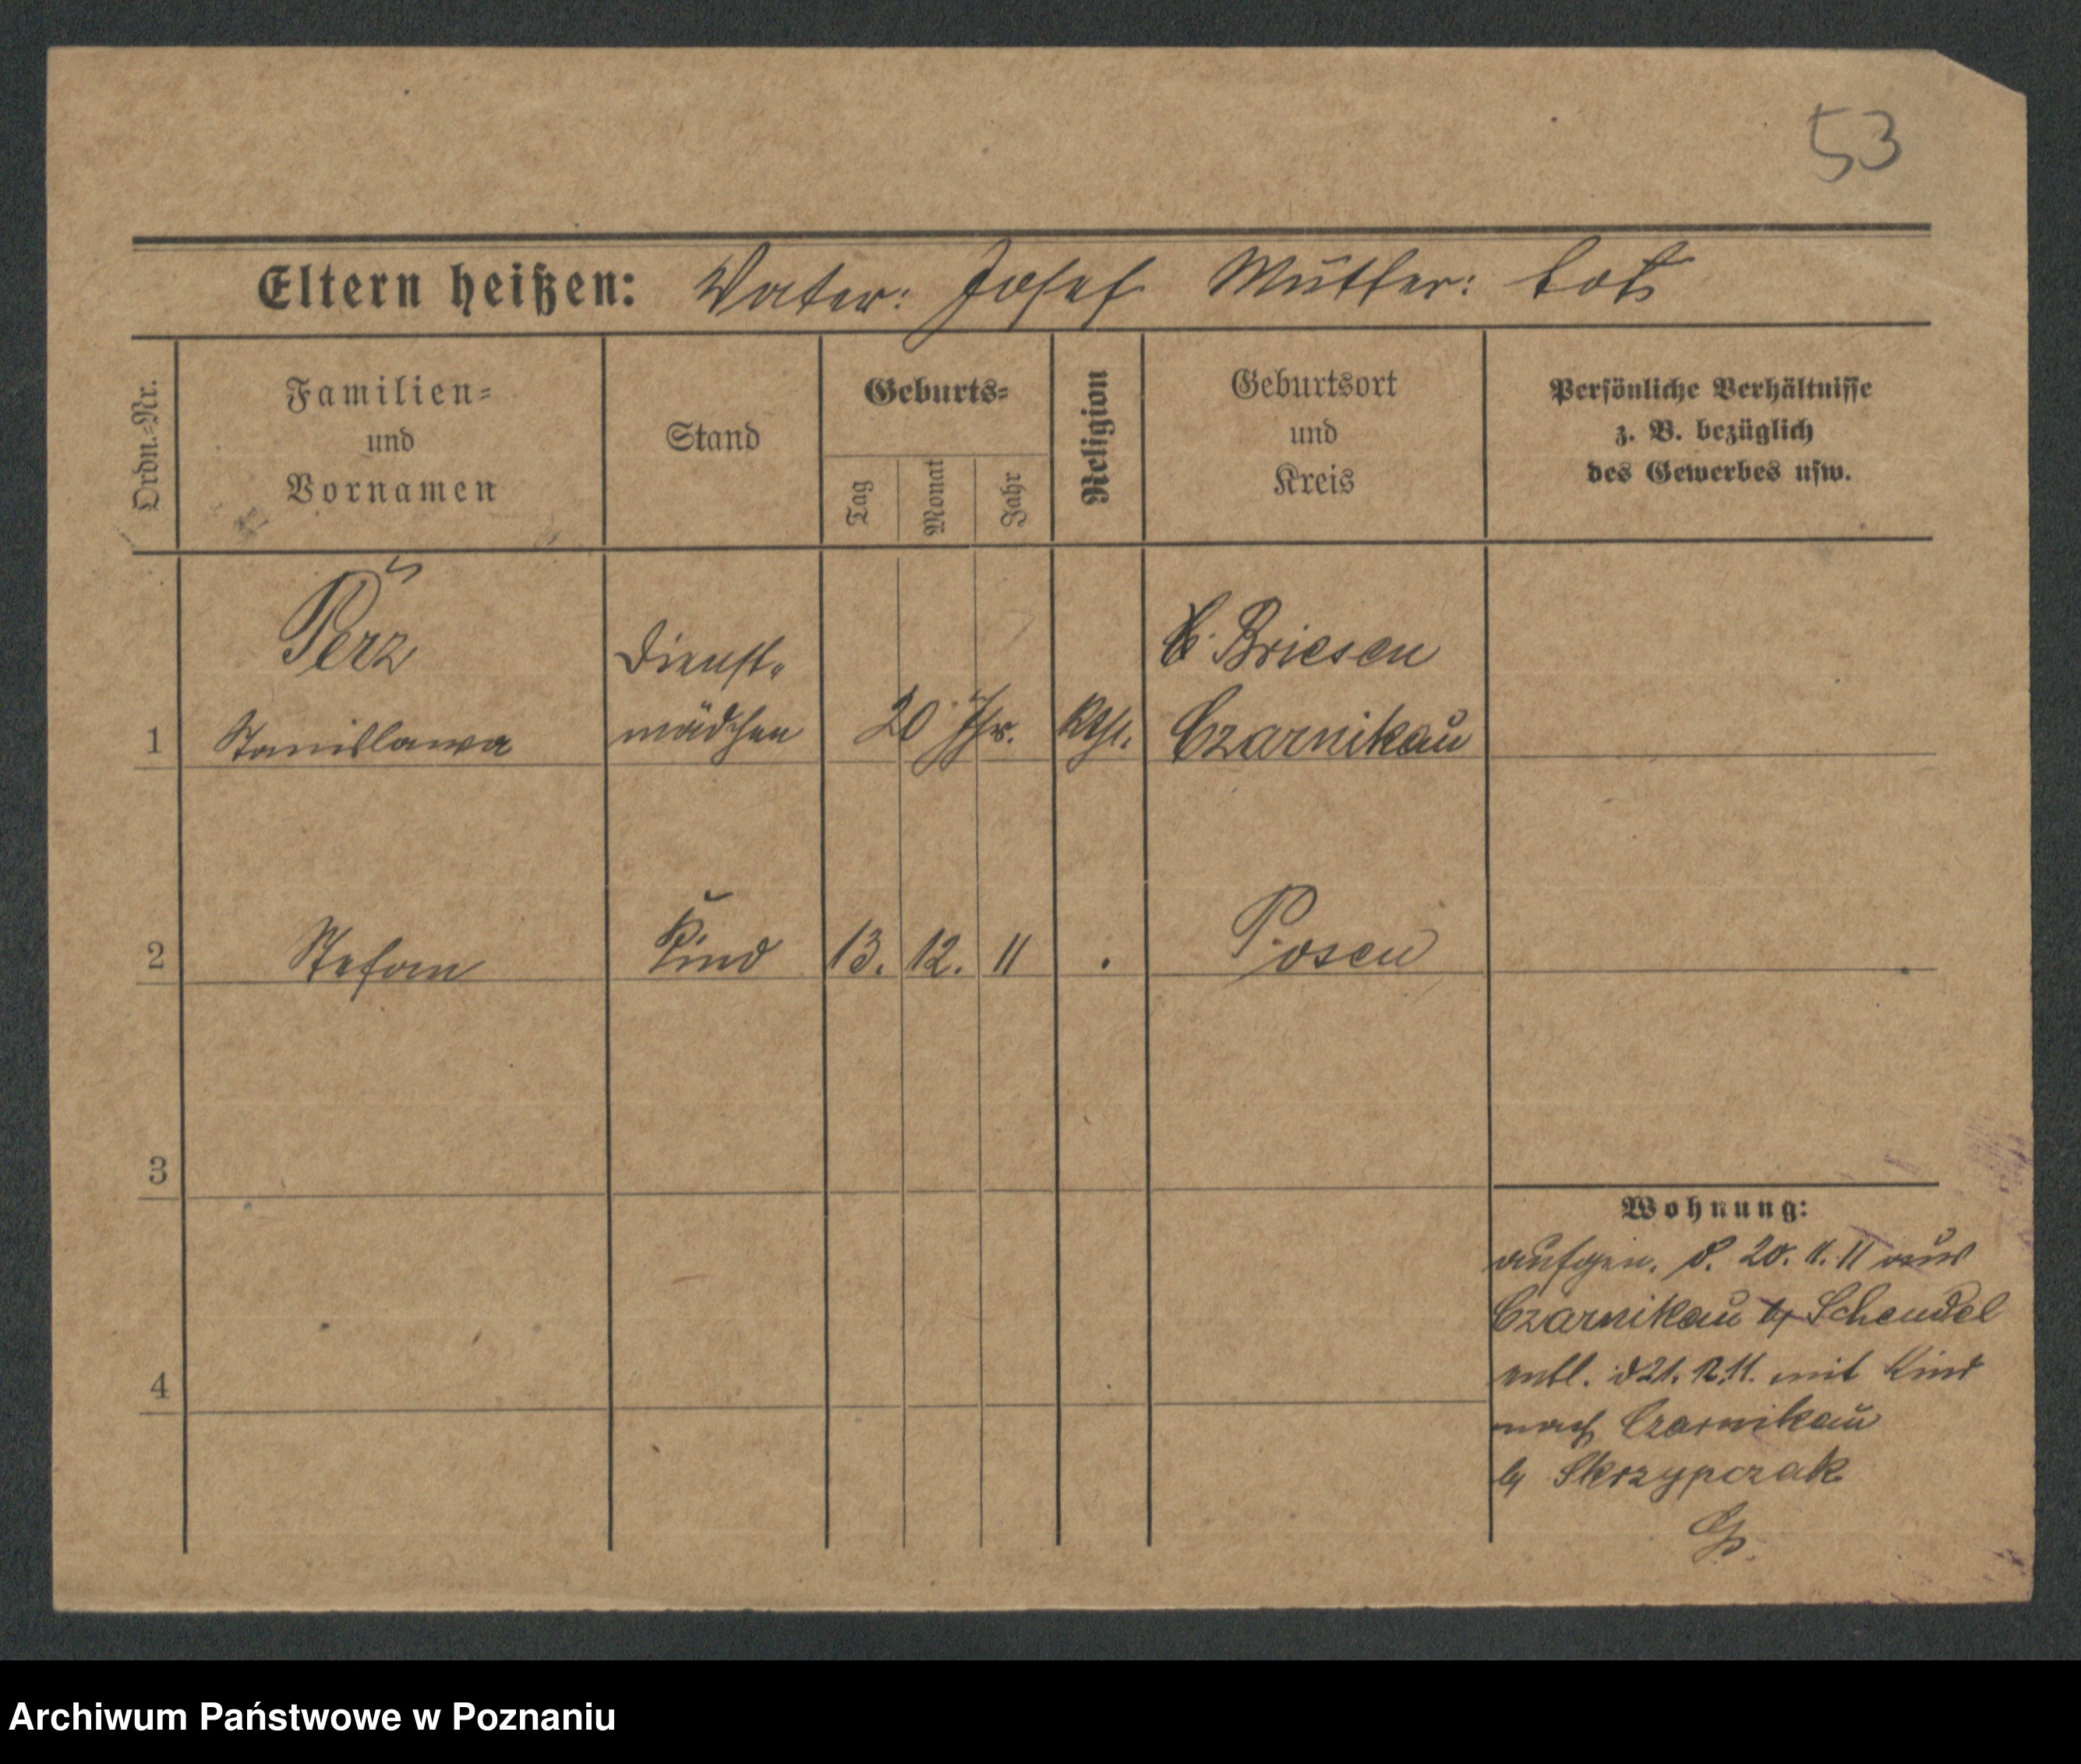 53
Eltern heißen: Vater: Josef Mutter: tot
Ordn.-Nr.
Familien-
und
Vornamen
Stand
Geburts-
Tag
Monat
Jahr
Religion
Geburtsort
und
Kreis
Persönliche Verhältnisse
z. B. bezüglich
des Gewerbes usw.
Perz
Dienst-
Briesen
1 Stanislawa mädchen 20 Jhr. Kth. Czarnikau
2 Stefan Kind 13. 12. 11 Posen
3
Wohnung:
aufgen. d. 20. 11. 11 aus
Czarnikau by Schendel
4
entl. d 21. 12. 11. mit Kind
nach Czarnikau
by Skrzypczak
Archiwum Państwowe w Poznaniu